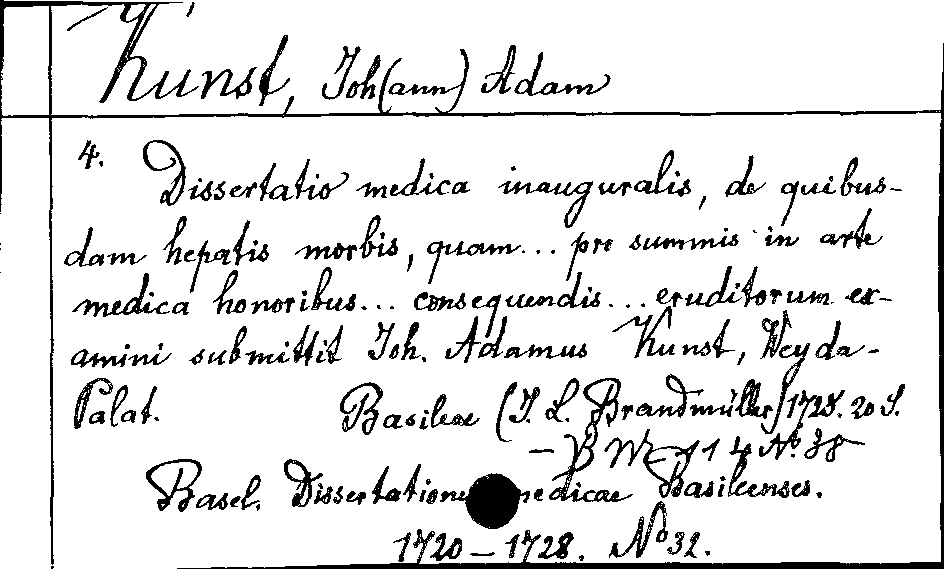 Kunst, Joh(ann) Adam
4. Dissertatio medica inauguralis, de quibus-
dam hepatis morbis, quam... pro summis in arte
medica honoribus... consequendis... eruditorum ex-
amini submittit Joh. Adamus Kunst, Weyda-
Palat. Basileae (J. L. Brandmüller) 1725. 20 S.
- B M 114 No. 38
Basel. Dissertationes medicae Basileenses.
1720 - 1728. No 32.